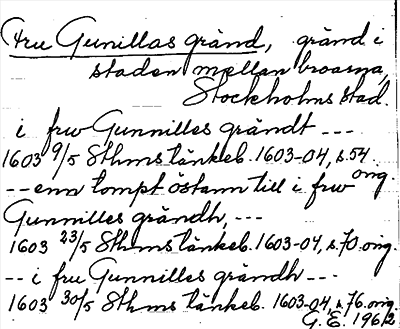 Fru Gunillas gränd, gränd i
staden mellan broarna,
Stockholms stad.
i frw Gunnilles grändt ---
1603 9/5 Sthms tänkeb. 1603-04, s. 54
-- enn tompt östann till i frw orig.
Gunnilles grändh, ---
1603 23/5 Sthms tänkeb. 1603-04, s. 70 orig.
-- i fru Gunnilles grändh ---
1603 30/5 Sthms tänkeb. 1603-04, s. 76 orig.
G. E. 1962